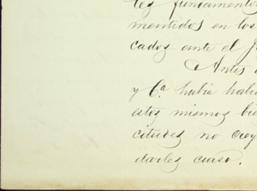 tes fundamentos
mentidos en los
cados ante el J
Antes
y Ca. había habi
estos mismos bie
citures no crey
darles curso.